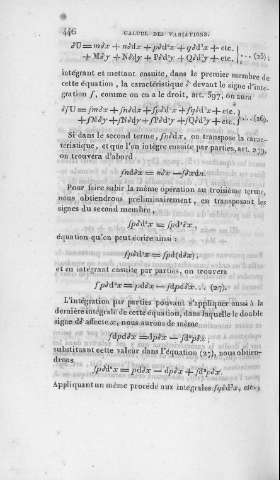 446 CALCUL DES VARIATIONS.
δU = mδx + nδdx + pδd²x + qδd³x + etc. } ...(25);
+ Mδy + Nδdy + Pδd²y + Qδd³y + etc.
intégrant et mettant ensuite, dans le premier membre de
cette équation, la caractéristique δ devant le signe d'inté-
gration ∫, comme on en a le droit, art. 597, on aura
δ∫U = ∫mδx + ∫nδdx + ∫pδd²x + ∫qδd³x + etc. } ...(26).
+ ∫Mδy + ∫Nδdy + ∫Pδd²y + ∫Qδd³y + etc.
Si dans le second terme, ∫nδdx, on transpose la carac-
téristique, et que l'on intègre ensuite par parties, art.
on trouvera d'abord
∫ndδx = nδx − ∫δxdn.
Pour faire subir la même opération au troisième terme,
nous obtiendrons préliminairement, en transposant les
signes du second membre,
∫pδd²x = ∫pd²δx,
équation qu'on peut écrire ainsi :
∫pδd²x = ∫pd(dδx);
et en intégrant ensuite par parties, on trouvera
∫pδd²x = pdδx − ∫dpdδx... (27).
L'intégration par parties pouvant s'appliquer aussi à la
dernière intégrale de cette équation, dans laquelle le double
signe dδ affecte x, nous aurons de même
∫dpdδx = dpδx − ∫d²pδx
substituant cette valeur dans l'équation (27), nous obtien-
drons
∫pδd²x = pdδx − dpδx + ∫d²pδx.
Appliquant un même procédé aux intégrales ∫qδd³x, etc.,